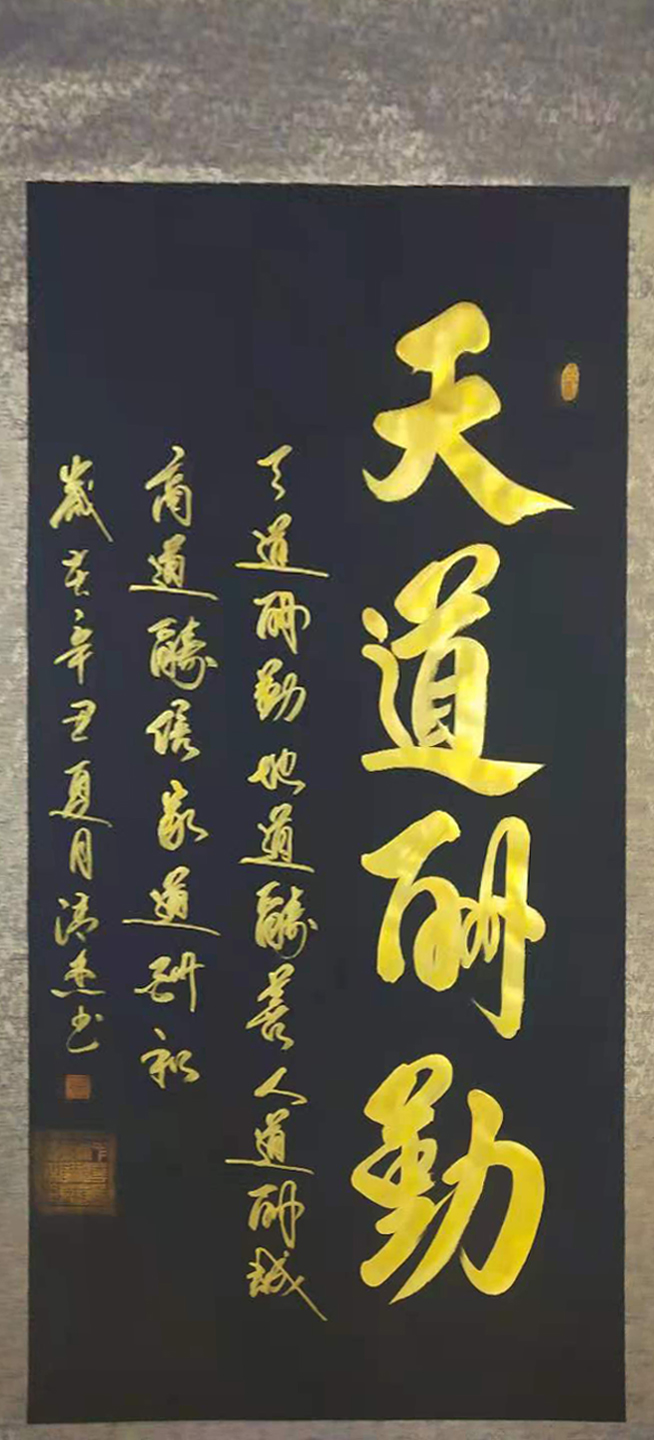 天道酬勤
天道酬勤地道酬善人道酬诚
商道酬信家道酬和
岁在辛丑夏月清杰书